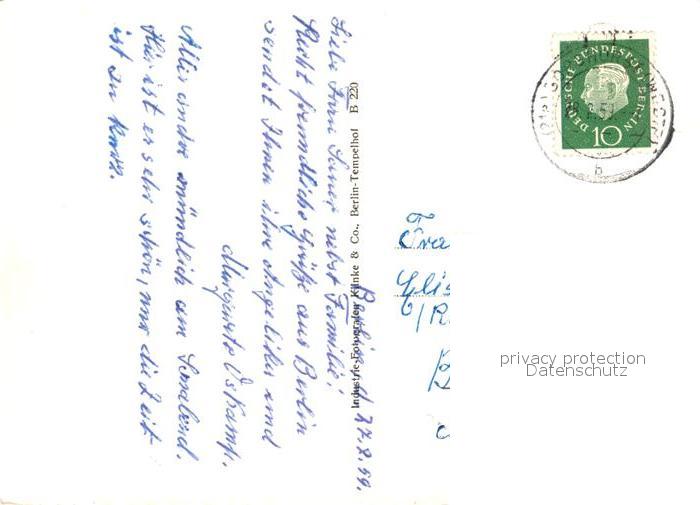 Berlin, d. 27.8.59.
Liebe Frau Sauer nebst Familie!
Recht freundliche Grüße aus Berlin
sendet Ihnen ihre Angelika und
Margarete Oskamp.
Alles andre mündlich am Sonnabend.
Hier ist es sehr schön, nur die Zeit
ist zu kurz.
Industrie-Fotografen Klinke & Co., Berlin-Tempelhof B 220
DEUTSCHE BUNDESPOST BERLIN
10
b
Fra
Elis
privacy protection
Datenschutz